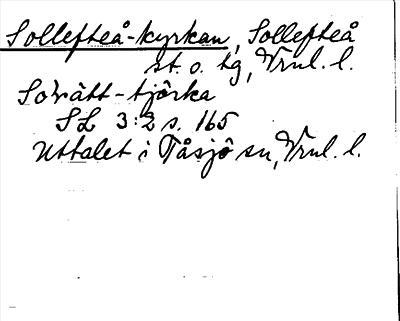 Sollefteå-kyrkan, Sollefteå
st. o. tg, Vrnl. l.
So'rått-tjôrka
SL 3:2 s. 165
Uttalet i Tåsjö sn, Vrnl. l.